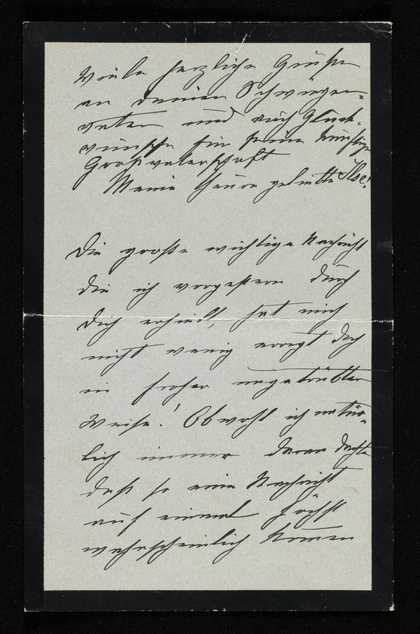 Viele herzliche Grüße
an deinen Schwieger-
vater und auch Glück-
wünsche für seine künftige
Großvaterschaft
Meine heiß geliebte Ilse!
Die große wichtige Nachricht
die ich vorgestern durch
Dich erhielt, hat mich
nicht wenig erregt doch
in froher ungetrübter
Weise! Obwohl ich natür-
lich immer daran dachte
daß so eine Nachricht
auf einmal höchst
wahrscheinlich kommen